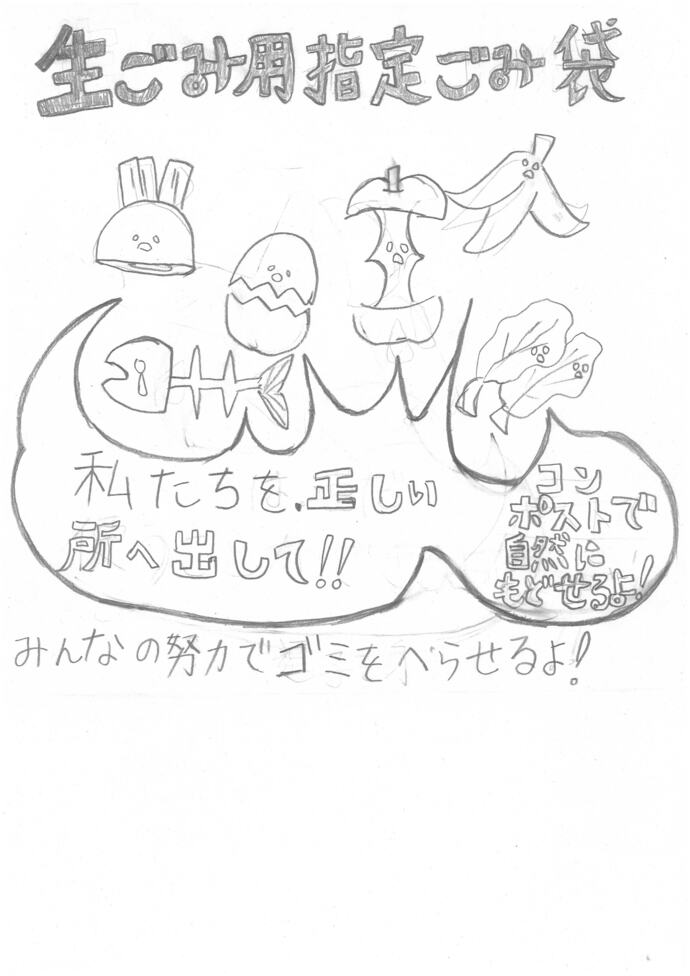 生ごみ用指定ごみ袋
私たちを.正しい
所へ出して!!
コン
ポストで
自然に
もどせるよ!
みんなの努力でゴミをへらせるよ!